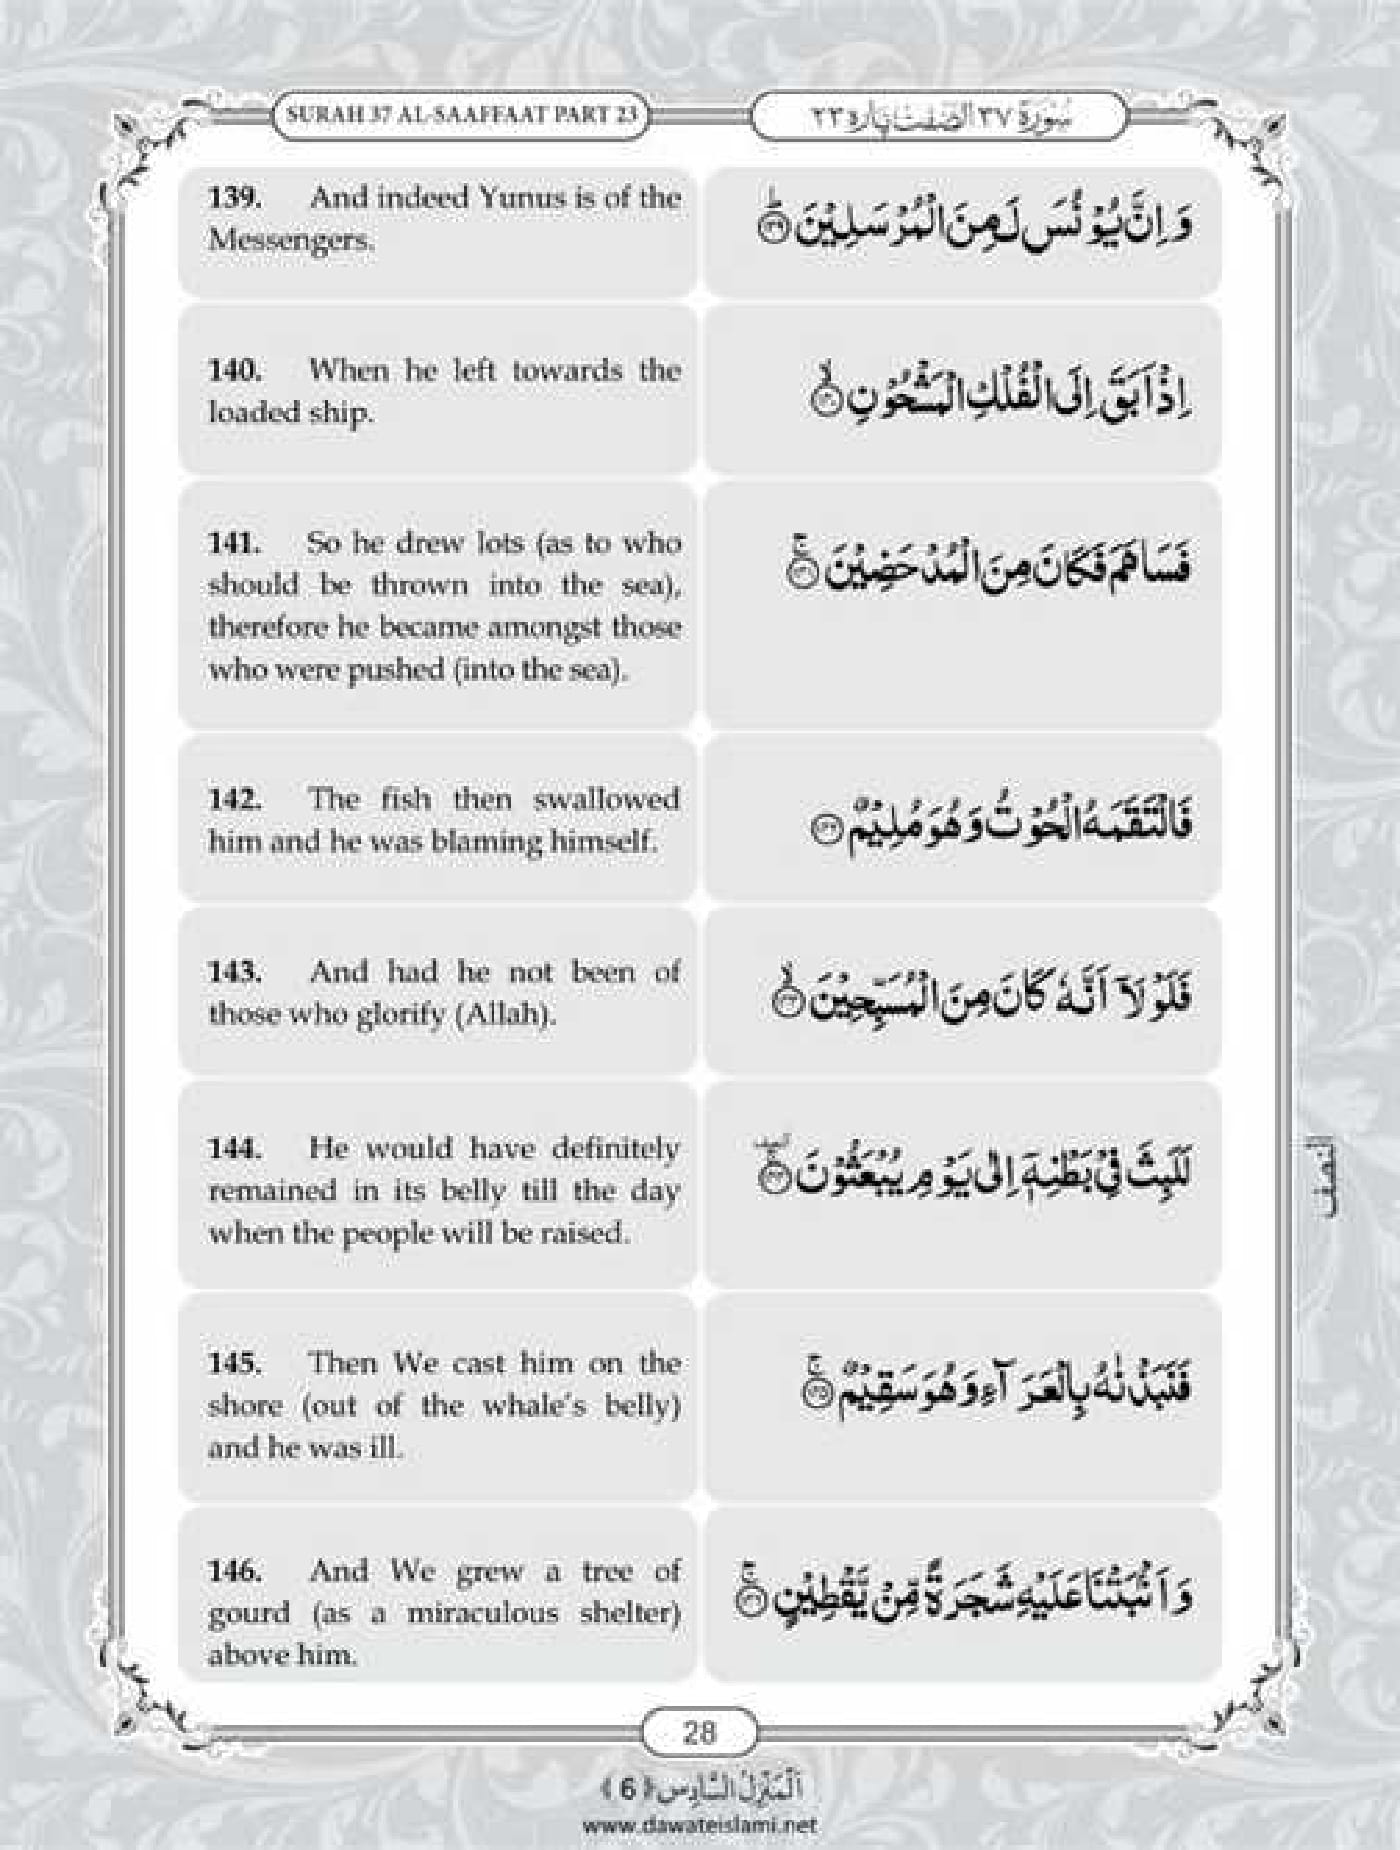 SURAH 37 AL-SAAFFAAT PART 23
سُوۡرَة ٣٧ الصّٰٓفّٰت پاره ٢٣
139. And indeed Yunus is of the
Messengers.
وَ اِنَّ یُوْنُسَ لَمِنَ الْمُرْسَلِیْنَؕ۝۱۳۹
140. When he left towards the
loaded ship.
اِذْ اَبَقَ اِلَى الْفُلْكِ الْمَشْحُوْنِۙ۝۱۴۰
141. So he drew lots (as to who
should be thrown into the sea),
therefore he became amongst those
who were pushed (into the sea).
فَسَاهَمَ فَكَانَ مِنَ الْمُدْحَضِیْنَۚ۝۱۴۱
142. The fish then swallowed
him and he was blaming himself.
فَالْتَقَمَهُ الْحُوْتُ وَ هُوَ مُلِیْمٌ۝۱۴۲
143. And had he not been of
those who glorify (Allah).
فَلَوْ لَاۤ اَنَّهٗ كَانَ مِنَ الْمُسَبِّحِیْنَۙ۝۱۴۳
144. He would have definitely
remained in its belly till the day
when the people will be raised.
لَلَبِثَ فِیْ بَطْنِهٖۤ اِلٰى یَوْمِ یُبْعَثُوْنَ۝۱۴۴
النصف
145. Then We cast him on the
shore (out of the whale's belly)
and he was ill.
فَنَبَذْنٰهُ بِالْعَرَآءِ وَ هُوَ سَقِیْمٌۚ۝۱۴۵
146. And We grew a tree of
gourd (as a miraculous shelter)
above him.
وَ اَنْۢبَتْنَا عَلَیْهِ شَجَرَةً مِّنْ یَّقْطِیْنٍۚ۝۱۴۶
28
اَلْمَنْزِلُ السَّادِس ﴿6﴾
www.dawateislami.net